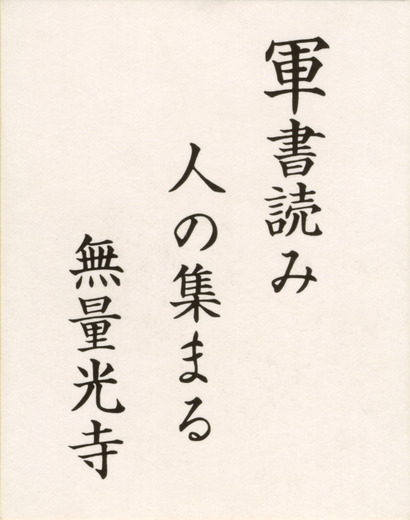 軍書読み
人の集まる
無量光寺